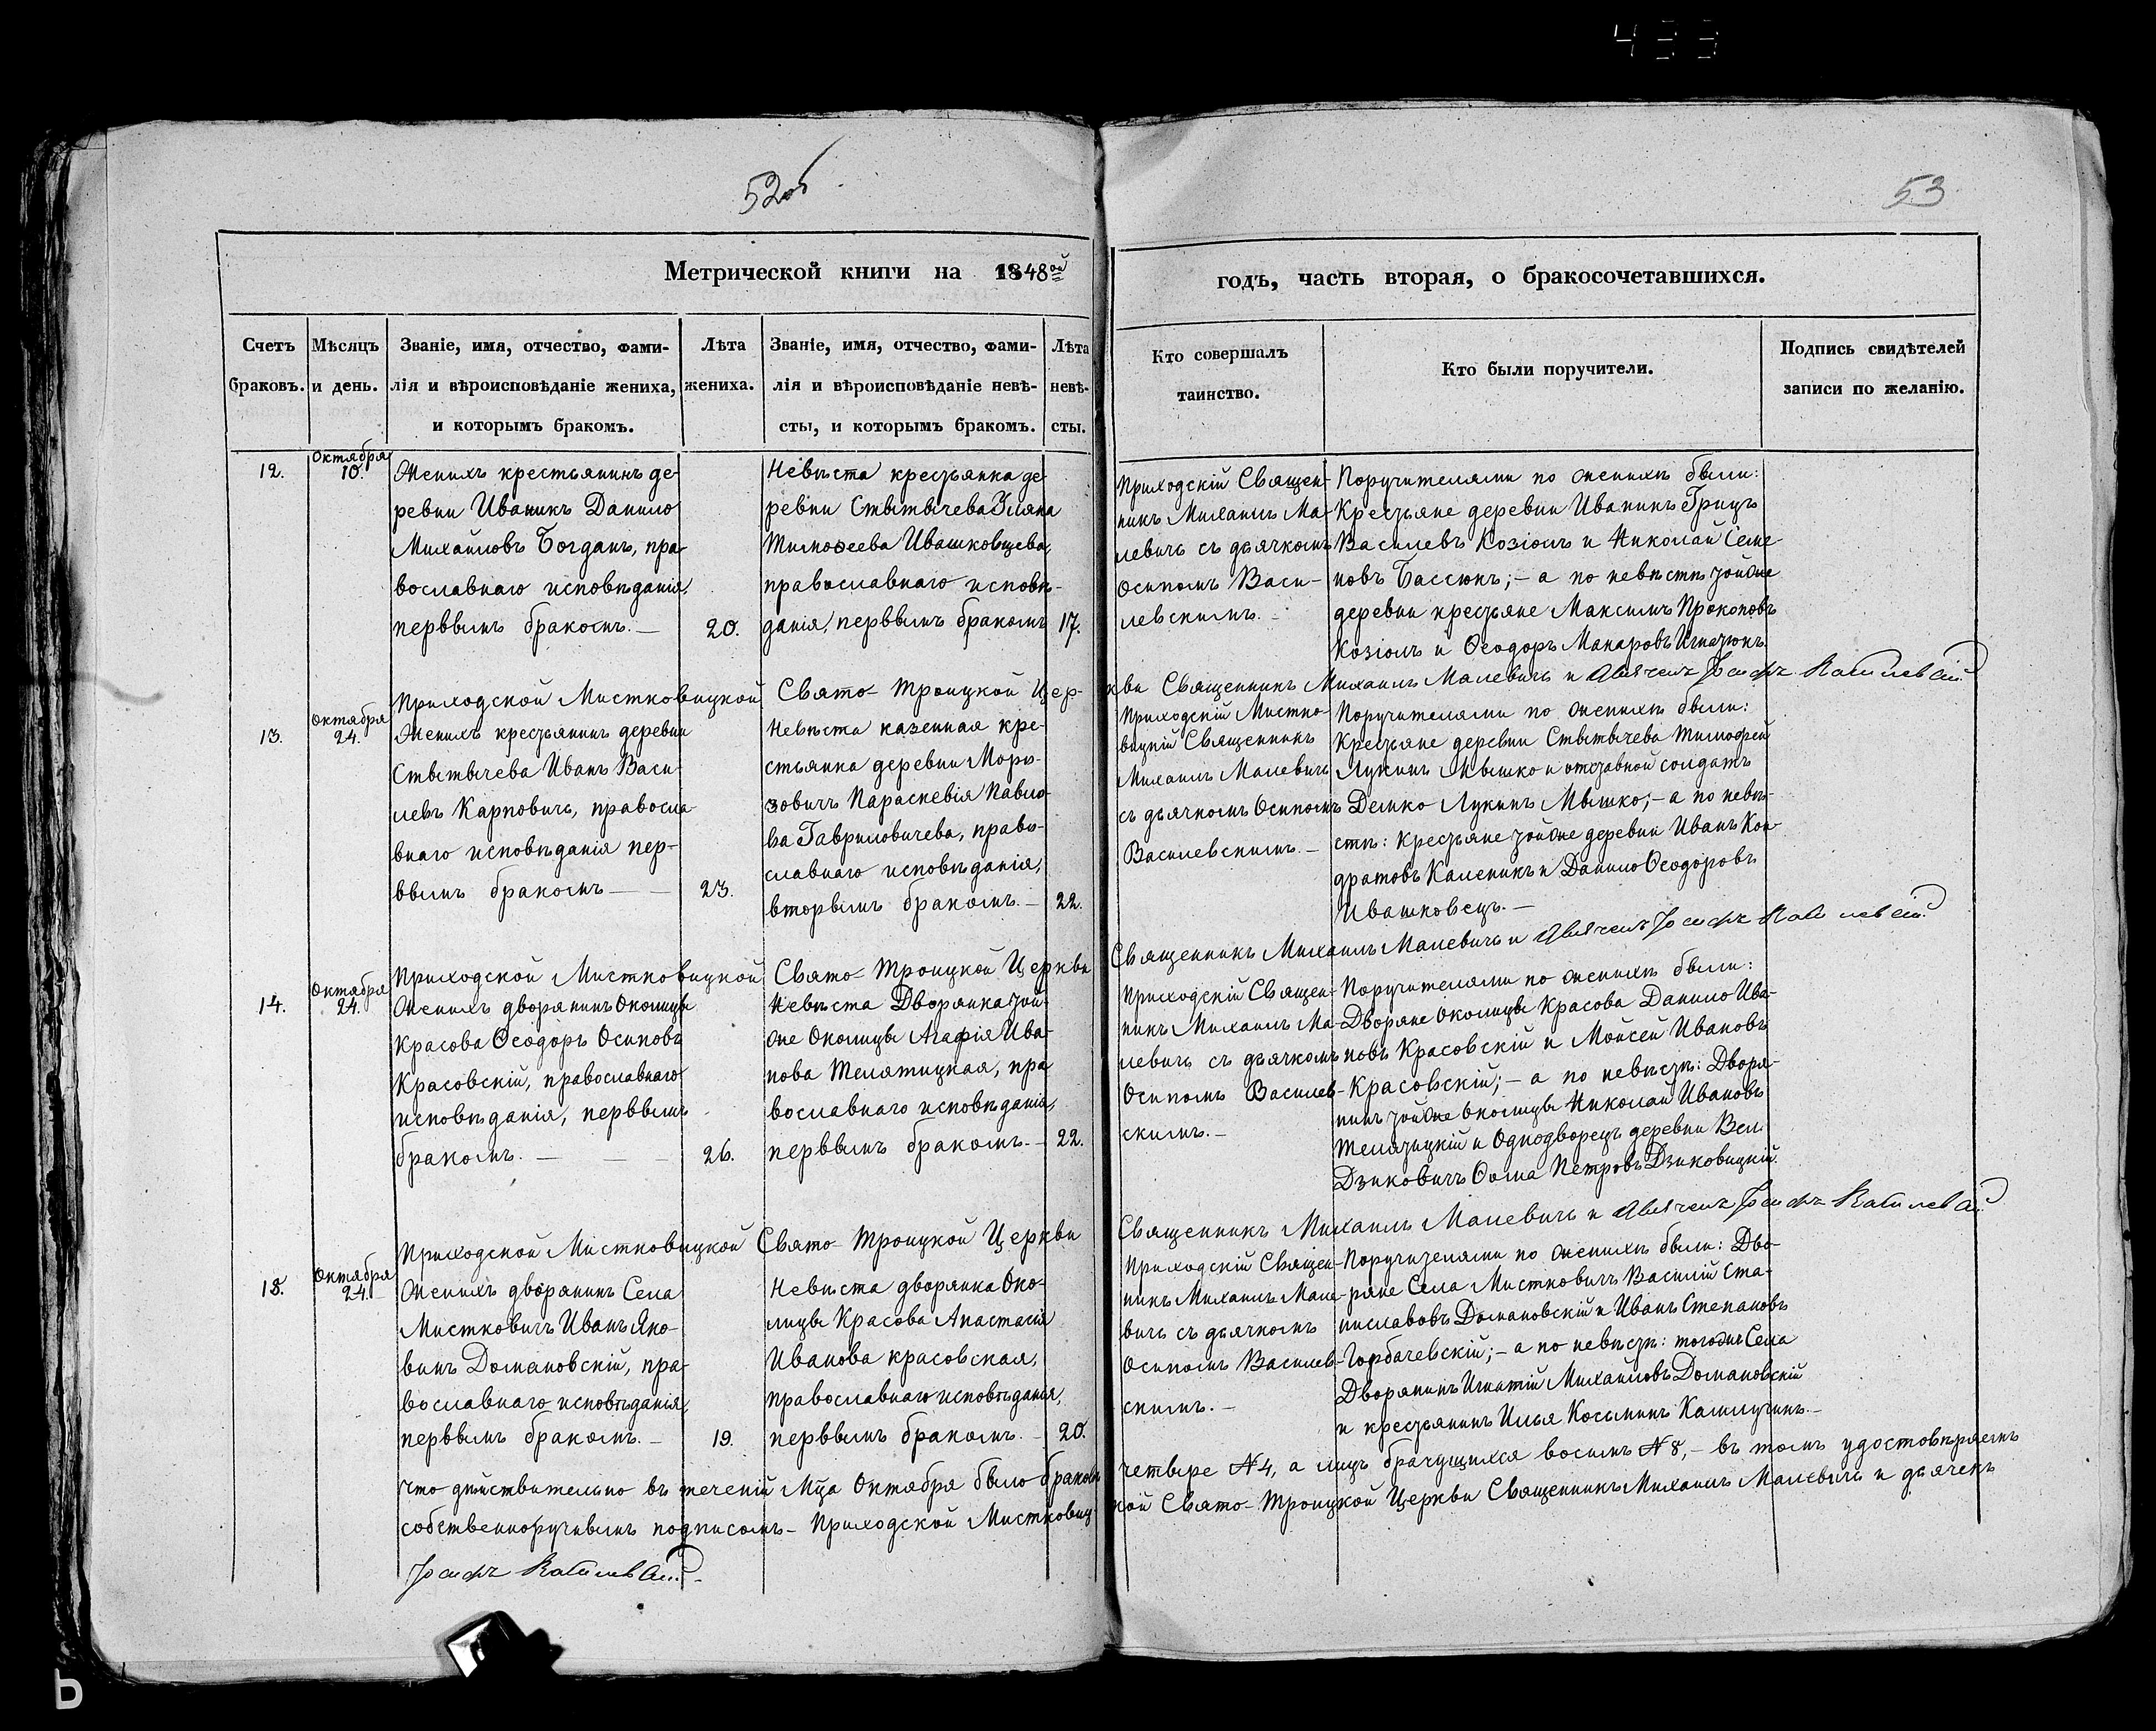 433
52об
53
Метрической книги на 1848ой
годъ, часть вторая, о бракосочетавшихся.
Счетъ браковъ.
Мѣсяцъ и день.
Званіе, имя, отчество, фами-
лія и вѣроисповѣданіе жениха,
и которымъ бракомъ.
Лѣта жениха.
Званіе, имя, отчество, фами-
лія и вѣроисповѣданіе невѣ-
сты, и которымъ бракомъ.
Лѣта невѣ-
сты.
Кто совершалъ
таинство.
Кто были поручители.
Подпись свидѣтелей
записи по желанію.
12.
Октября
10.
Женихъ крестьянинъ де-
ревни Иваникъ Данило
Михаиловъ Богданъ, пра-
вославнаго исповѣданія,
первымъ бракомъ.—
20.
Невѣста крестьянка де-
ревни Стытычева Уляна
Тимоѳеева Ивашковцева,
православнаго исповѣ-
данія, первымъ бракомъ
17.
Приходскій Священ-
никъ Михаилъ Ма-
левичъ съ дьячкомъ
Осипомъ Васи-
левскимъ.—
Поручителями по женихѣ были:
Крестьяне деревни Иваникъ Грицъ
Василевъ Козіолъ и Николай Семе-
новъ Бассюкъ;— а по невѣстѣ тойже
деревни крестьяне Максимъ Прокоповъ
Козіолъ и Ѳеодоръ Макаровъ Игнатюкъ.
Приходской Мистковицкой Свято-Троицкой Цер-
кви Священникъ Михаилъ Малевичъ и Дьячекъ Іосифъ Василевскій
13.
Октября
24.
Женихъ крестьянинъ деревни
Стытычева Иванъ Васи-
левъ Карповичъ, правосла-
внаго исповѣданія пер-
вымъ бракомъ— —
23.
Невѣста казенная кре-
стьянка деревни Моро-
зовичъ Параскевія Павло-
ва Гавриловичева, право-
славнаго исповѣданія,
вторымъ бракомъ.—
22.
Приходскій Мистко-
вицкій Священникъ
Михаилъ Малевичъ
съ дьячкомъ Осипомъ
Василевскимъ.—
Поручителями по женихѣ были:
Крестьяне деревни Стытычева Тимофей
Лукинъ Мышко и отставной солдатъ
Демко Лукинъ Мышко;— а по невѣ-
стѣ: крестьяне тойже деревни Иванъ Кон-
дратовъ Каленикъ и Данило Ѳеодоровъ
Ивашковецъ.—
Приходской Мистковицкой Свято-Троицкой Церкви
Священникъ Михаилъ Малевичъ и Дьячекъ Іосифъ Василевскій
14.
Октября
24.
Женихъ дворянинъ Околицы
Красова Ѳеодоръ Осиповъ
Красовскій, православнаго
исповѣданія, первымъ
бракомъ.— — —
26.
Невѣста Дворянка той-
же Околицы Агафія Ива-
нова Телятицкая, пра-
вославнаго исповѣданія,
первымъ бракомъ.—
22.
Приходскій Священ-
никъ Михаилъ Ма-
левичъ съ дьячкомъ
Осипомъ Василев-
скимъ.—
Поручителями по женихѣ были:
Дворяне Околицы Красова Данило Ива-
новъ Красовскій и Моисей Ивановъ
Красовскій;— а по невѣстѣ: Дворя-
нинъ тойже околицы Николай Ивановъ
Телятицкій и Однодворецъ деревни Вел.
Дзиковичъ Ѳома Петровъ Дзиковицкій.
Приходской Мистковицкой Свято-Троицкой Церкви
Священникъ Михаилъ Малевичъ и Дьячекъ Іосифъ Василевскій
15.
Октября
24.
Женихъ дворянинъ Села
Мистковичъ Иванъ Яко-
винъ Домановскій, пра-
вославнаго исповѣданія,
первымъ бракомъ.—
19.
Невѣста дворянка Око-
лицы Красова Анастасія
Иванова красовская,
православнаго исповѣданія,
первымъ бракомъ.—
20.
Приходскій Священ-
никъ Михаилъ Мале-
вичъ съ дьячкомъ
Осипомъ Василев-
скимъ.—
Поручителями по женихѣ были: Дво-
ряне Села Мистковичъ Василій Ста-
ниславовъ Домановскій и Иванъ Степановъ
Горбачевскій;— а по невѣстѣ: тогожъ Села
Дворянинъ Игнатій Михаиловъ Домановскій
и крестьянинъ Илья Косьминъ
Что дѣйствительно въ теченій Мца Октября было браковъ
четыре №4, а лицъ брачущихся восимъ №8,— въ томъ удостовѣряемъ
собственноручнымъ подписомъ— Приходской Мистковиц-
кой Свято-Троицкой Церкви Священникъ Михаилъ Малевичъ и дьячекъ
Іосифъ Василевскій